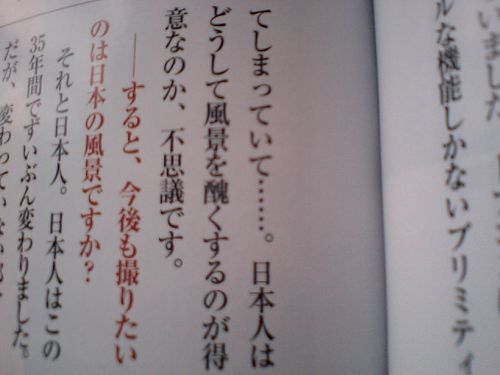 いました
ルな機能しかないプリミティ
てしまっていて……。日本人は
どうして風景を醜くするのが得
意なのか、不思議です。
――すると、今後も撮りたい
のは日本の風景ですか?
それと日本人。日本人はこの
35年間でずいぶん変わりました。
だが、変わっていない